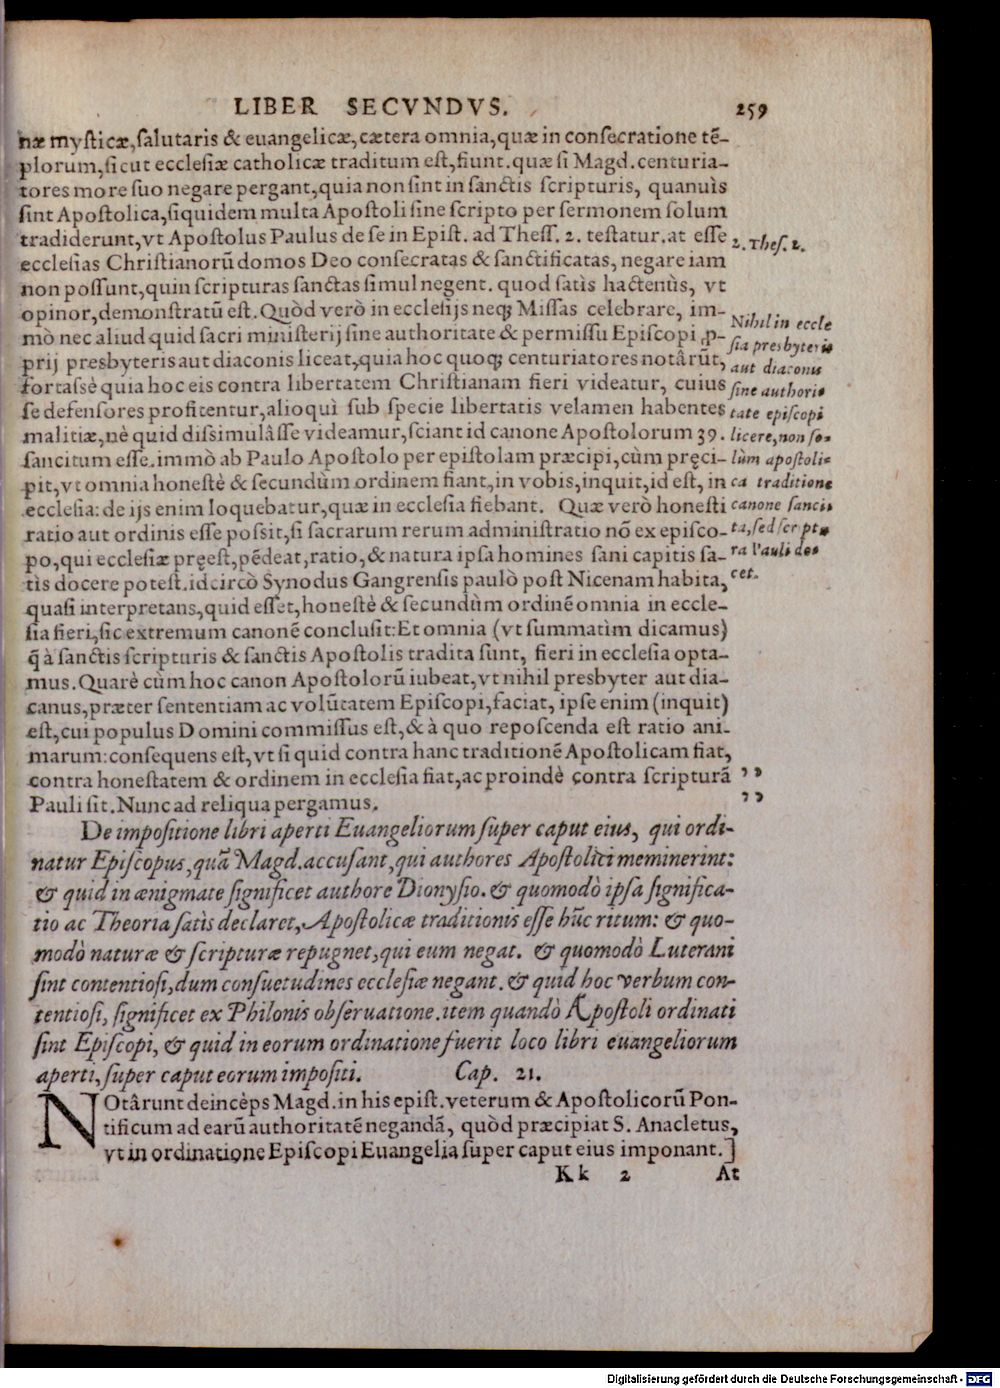 LIBER SECVNDVS. 259
næ mysticæ, salutaris & euangelicæ, cætera omnia, quæ in consecratione tẽ-
plorum, sicut ecclesiæ catholicæ traditum est, fiunt. quæ si Magd. centuria-
tores more suo negare pergant, quia non sint in sanctis scripturis, quanuìs
sint Apostolica, siquidem multa Apostoli sine scripto per sermonem solum
tradiderunt, vt Apostolus Paulus de se in Epist. ad Thess. 2. testatur. at esse
ecclesias Christianorũ domos Deo consecratas & sanctificatas, negare iam
non possunt, quin scripturas sanctas simul negent. quod satìs hactenùs, vt
opinor, demonstratũ est. Quòd verò in ecclesijs neq; Missas celebrare, im-
mò nec aliud quid sacri ministerij sine authoritate & permissu Episcopi ,p-
prij presbyteris aut diaconis liceat, quia hoc quoq; centuriatores notârũt,
fortassè quia hoc eis contra libertatem Christianam fieri videatur, cuius
se defensores profitentur, alioquì sub specie libertatis velamen habentes
malitiæ, nè quid dissimulâsse videamur, sciant id canone Apostolorum 39.
sancitum esse. immò ab Paulo Apostolo per epistolam præcipi, cùm pręci-
pit, vt omnia honestè & secundùm ordinem fiant, in vobis, inquit, id est, in
ecclesia: de ijs enim loquebatur, quæ in ecclesia fiebant. Quæ verò honesti
ratio aut ordinis esse possit, si sacrarum rerum administratio nõ ex episco-
po, qui ecclesiæ pręest, pẽdeat, ratio, & natura ipsa homines sani capitis sa-
tìs docere potest. idcircò Synodus Gangrensis paulò post Nicenam habita,
quasi interpretans, quid esset, honestè & secundùm ordinẽ omnia in eccle-
sia fieri, sic extremum canonẽ conclusit: Et omnia (vt summatìm dicamus)
q̃ à sanctis scripturis & sanctis Apostolis tradita sunt, fieri in ecclesia opta-
mus. Quarè cùm hoc canon Apostolorũ iubeat, vt nihil presbyter aut dia-
canus, præter sententiam ac volũtatem Episcopi, faciat, ipse enim (inquit)
est, cui populus Domini commissus est, & à quo reposcenda est ratio ani-
marum: consequens est, vt si quid contra hanc traditionẽ Apostolicam fiat,
contra honestatem & ordinem in ecclesia fiat, ac proindè contra scripturã ,,
Pauli sit. Nunc ad reliqua pergamus. ,,
2. Thes. 2.
Nihil in eccle
sia presbyteris
aut diaconis
sine authori-
tate episcopi
licere, non so-
lùm apostoli-
ca traditione
canone sanci-
ta, sed scriptu-
ra Pauli do-
cet.
De impositione libri aperti Euangeliorum super caput eius, qui ordi-
natur Episcopus, quã Magd. accusant, qui authores Apostolici meminerint:
& quid in ænigmate significet authore Dionysio. & quomodò ipsa significa-
tio ac Theoria satìs declaret, Apostolicæ traditionis esse hũc ritum: & quo-
modò naturæ & scripturæ repugnet, qui eum negat. & quomodò Luterani
sint contentiosi, dum consuetudines ecclesiæ negant. & quid hoc verbum con-
tentiosi, significet ex Philonis obseruatione. item quandò Apostoli ordinati
sint Episcopi, & quid in eorum ordinatione fuerit loco libri euangeliorum
aperti, super caput eorum impositi. Cap. 21.
NOtârunt deincèps Magd. in his epist. veterum & Apostolicorũ Pon-
tificum ad earũ authoritatẽ negandã, quòd præcipiat S. Anacletus,
vt in ordinatione Episcopi Euangelia super caput eius imponant.]
Kk 2 At
Digitalisierung gefördert durch die Deutsche Forschungsgemeinschaft - DFG